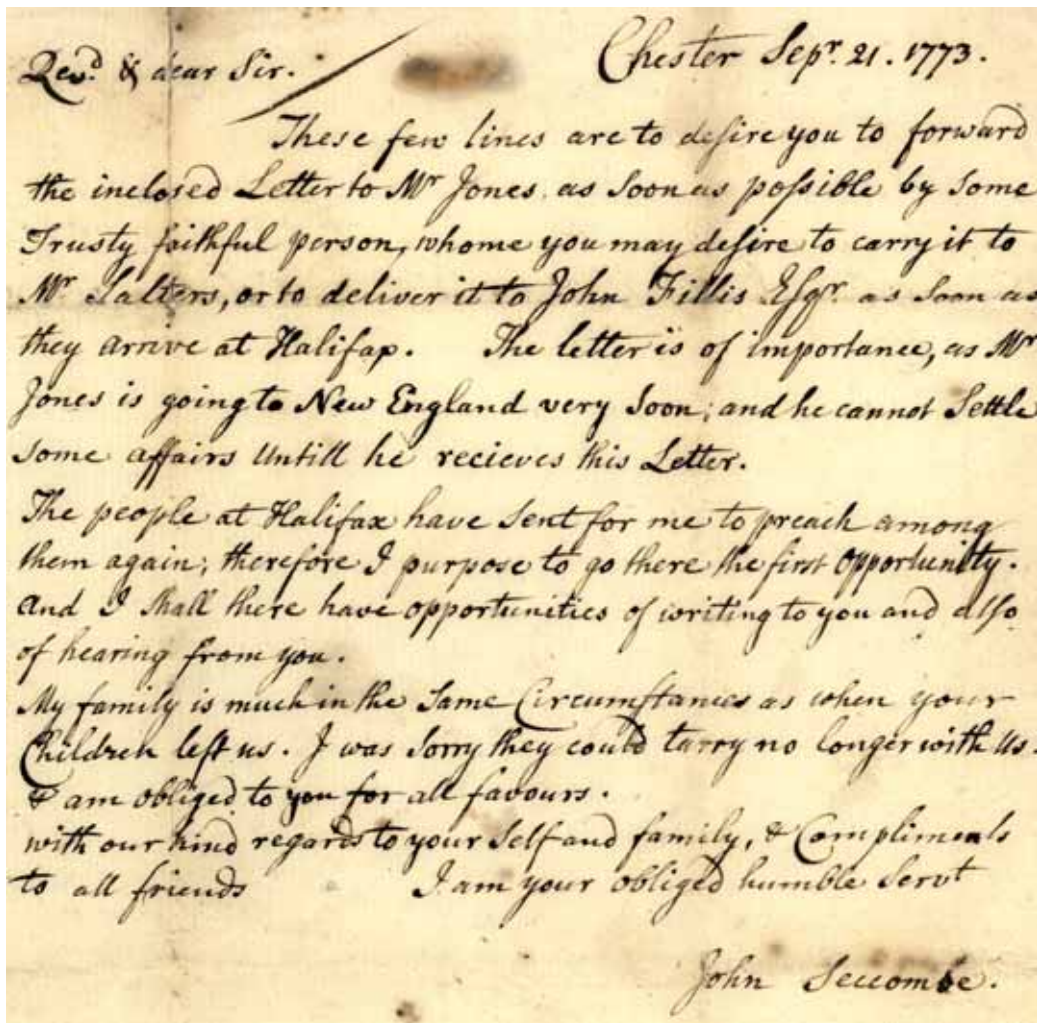 Revd & dear Sir.
Chester Sepr. 21. 1773.
These few lines are to desire you to forward
the inclosed Letter to Mr Jones. as soon as possible by some
Trusty faithful person, whome you may desire to carry it to
Mr Salters, or to deliver it to John Fillis Esqr. as soon as
they arrive at Halifax. The letter is of importance, as Mr
Jones is going to New England very soon; and he cannot Settle
some affairs Untill he recieves this Letter.
The people at Halifax have sent for me to preach among
them again; therefore I purpose to go there the first Opportunity.
and I shall there have opportunities of writing to you and also
of hearing from you.
My family is much in the Same Circumstances as when your
Children left us. I was sorry they could tarry no longer with Us.
& am obliged to you for all favours.
with our kind regards to your Self and family, & Compliments
to all friends I am your obliged humble Servt
John Seccombe.